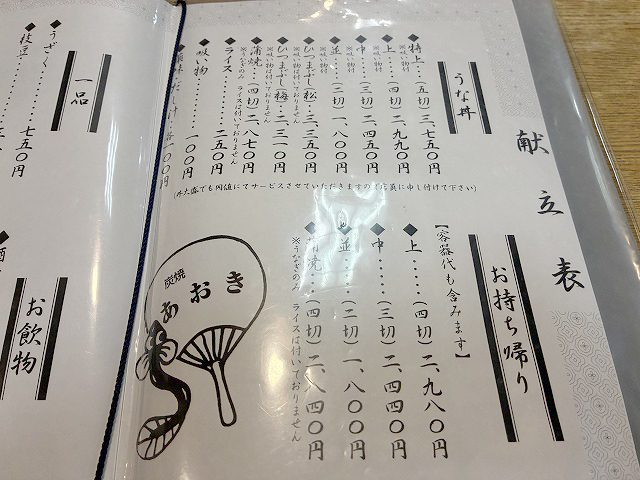 献立表
うな丼
◆特上‥(五切)三、七五〇円
※吸い物付
◆上‥‥(四切)二、九九〇円
※吸い物付
◆中‥‥(三切)二、四五〇円
※吸い物付
◆並‥‥(二切)一、八〇〇円
※吸い物付
◆ひつまぶし(松)‥三、三五〇円
※吸い物は付いておりません
◆ひつまぶし(梅)‥二、三一〇円
※吸い物は付いておりません
◆蒲焼‥(四切)二、八七〇円
※うなぎのみ ライスは付いておりません
◆ライス‥‥‥‥二五〇円
◆吸い物‥‥‥‥一〇〇円
だし汁‥各一〇〇円
(丼大盛でも同値にてサービスさせていただきますので店員に申し付けて下さい)
お持ち帰り
【容器代も含みます】
◆上‥‥‥(四切)二、九八〇円
◆中‥‥‥(三切)二、四四〇円
◆並‥‥‥(二切)一、八〇〇円
◆蒲焼‥‥(四切)二、八四〇円
※うなぎのみ ライスは付いておりません
炭焼
あおき
一品
◆うざく‥‥‥‥七五〇円
◆枝豆‥‥‥‥三
お飲物
◆酒